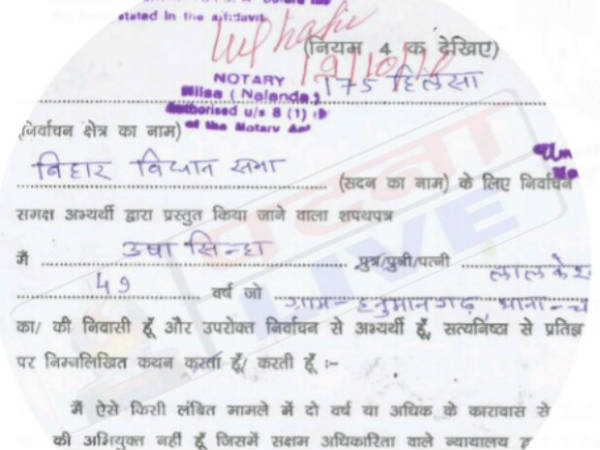 stated in the affidavit
(नियम 4 क देखिए)
19/10/10
NOTARY
175 हिलसा
Hilsa (Nalanda)
Authorised u/s 8 (1)
of the Notary Act
(निर्वाचन क्षेत्र का नाम)
बिहार विधान सभा
(सदन का नाम) के लिए निर्वाचन
समक्ष अभ्यर्थी द्वारा प्रस्तुत किया जाने वाला शपथपत्र
मैं उषा सिन्हा पुत्र/पुत्री/पत्नी लालकेश
49 वर्ष जो ग्राम-हनुमानगढ़, थाना-च
का/ की निवासी हूँ और उपरोक्त निर्वाचन से अभ्यर्थी हूँ, सत्यनिष्ठा से प्रतिज्ञ
पर निम्नलिखित कथन करता हूँ/ करती हूँ :-
मैं ऐसे किसी लंबित मामले में दो वर्ष या अधिक के कारावास से
की अभियुक्त नहीं हूँ जिसमें सक्षम अधिकारिता वाले न्यायालय द्व
पटना
LIVE